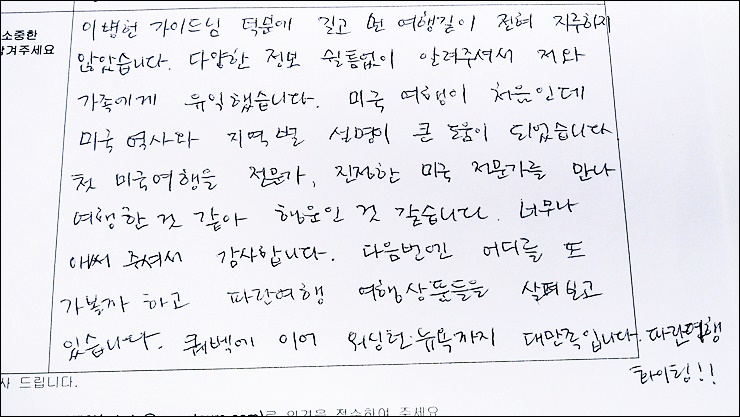 소중한
남겨주세요
이병헌 가이드님 덕분에 길고 먼 여행길이 전혀 지루하지
않았습니다. 다양한 정보 쉴틈없이 알려주셔서 저와
가족에게 유익했습니다. 미국 여행이 처음인데
미국 역사와 지역별 설명이 큰 도움이 되었습니다.
첫 미국여행을 전문가, 진정한 미국 전문가를 만나
여행한 것 같아 행운인 것 같습니다. 너무나
애써 주셔서 감사합니다. 다음번엔 어디를 또
가볼까 하고 파란여행 여행상품들을 살펴보고
있습니다. 퀘벡에 이어 워싱턴·뉴욕까지 대만족입니다. 파란여행
화이팅!!
사 드립니다.
로 의견을 접수하여 주세요